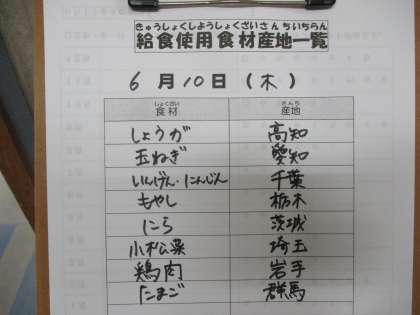 きゅうしょくしようしょくざいさんちいちらん
給食使用食材産地一覧
6月10日(木)
しょくざい さんち
食材 産地
しょうが 高知
玉ねぎ 愛知
いんげん・にんじん 千葉
もやし 栃木
にら 茨城
小松菜 埼玉
鶏肉 岩手
たまご 群馬